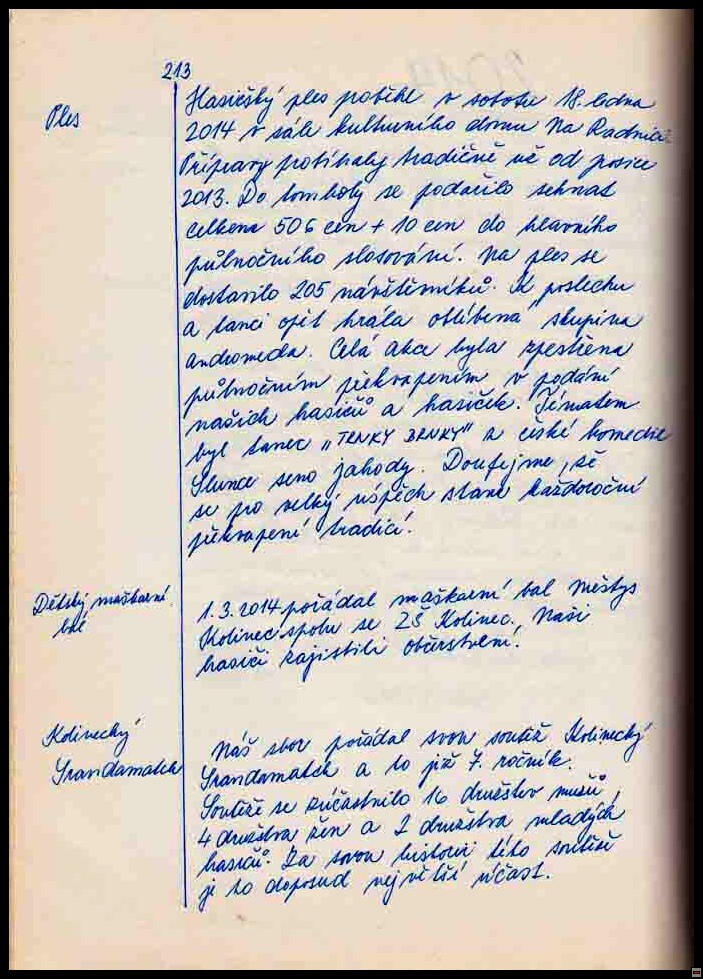 213
Ples
Hasičský ples poběhl v sobotu 18. ledna
2014 v sále kulturního domu Na Radnici.
Přípravy probíhaly tradičně už od prosice
2013. Do tomboly se podařilo sehnat
celkem 506 cen + 10 cen do hlavního
půlnočního slosování. Na ples se
dostavilo 205 návštěvníků. K poslechu
a tanci opět hrála oblíbená skupina
Andromeda. Celá akce byla zpestřena
půlnočním překvapením v podání
našich hasičů a hasiček. Tématem
byl tanec „TRNKY BRNKY" z české komedie
Slunce seno jahody. Doufejme, že
se pro velký úspěch stane každoroční
překvapení tradicí.
Dětský maškarní
bál
1.3.2014 pořádal maškarní bal Městys
Kolinec spolu se ZŠ Kolinec. Naši
hasiči zajistili občerstvení.
Kolinecký
Srandamatch
Náš sbor pořádal svou soutěž Kolinecký
Srandamatch a to již 7. ročník.
Soutěže se zúčastnilo 16 družstev mužů,
4 družstva žen a 2 družstva mladých
hasičů. Za svou historii této soutěže
je to doposud největší účast.